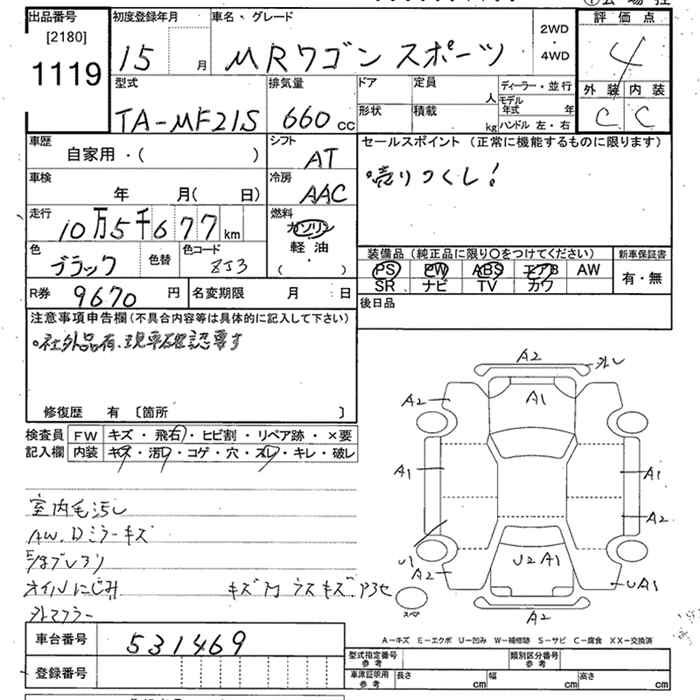 出品番号 初度登録年月 車名・グレード 2WD 評価点
[2180] 15 月 MRワゴン スポーツ ・ 4
1119 4WD
型式 排気量 ドア 定員 人 ディーラー・並行 外装 内装
TA-MF21S 660 cc 形状 積載 kg モデル年式 年 C C
ハンドル 左・右
車歴 自家用・( ) シフト AT セールスポイント(正常に機能するものに限ります)
車検 年 月( 日) 冷房 AAC 売りつくし!
走行 10万5千677 km 燃料 ガソリン
軽油
・
( )
色 ブラック 色替 色コード ZJ3 装備品(純正品に限り○をつけてください) 新車保証書
PS PW ABS エアB AW 有・無
SR ナビ TV カワ
R券 9670 円 名変期限 月 日 後日品
注意事項申告欄(不具合内容等は具体的に記入して下さい)
。社外品有、現車確認要す
修復歴 有 〔箇所 〕
検査員 FW キズ・飛石・ヒビ割・リペア跡・×要
記入欄 内装 キズ・汚レ・コゲ・穴・スレ・キレ・破レ
室内毛汚レ
AW、Dミラーキズ
オイルにじみ
外マフラー
A2 外し
A2 A1
A1 A1
A2
U1 U2 A1
A2 UA1
スペア A2
A-キズ E-エクボ U-凹み W-補修跡 S-サビ C-腐食 XX-交換済
車台番号 531469
型式指定番号 参考 類別区分番号 参考
登録番号 車庫証明用 参考 長さ cm 幅 cm 高さ cm